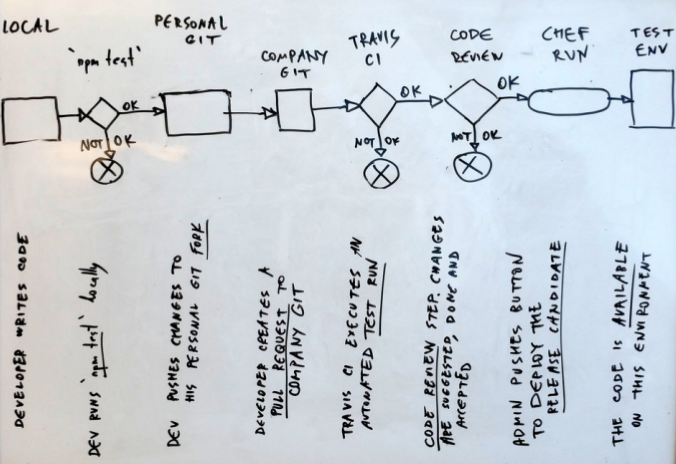 LOCAL
'npm test'
PERSONAL
GIT
COMPANY
GIT
TRAVIS
CI
CODE
REVIEW
CHEF
RUN
TEST
ENV
OK
NOT OK
OK
NOT OK
OK
NOT OK
DEVELOPER WRITES CODE
DEV RUNS 'npm test' locally
DEV PUSHES CHANGES TO
HIS PERSONAL GIT FORK
DEVELOPER CREATES A
PULL REQUEST TO
COMPANY GIT
TRAVIS CI EXECUTES AN
AUTOMATED TEST RUN
CODE REVIEW STEP. CHANGES
ARE SUGGESTED, DONE AND
ACCEPTED
ADMIN PUSHES BUTTON
TO DEPLOY THE
RELEASE CANDIDATE
THE CODE IS AVAILABLE
ON THIS ENVIRONMENT